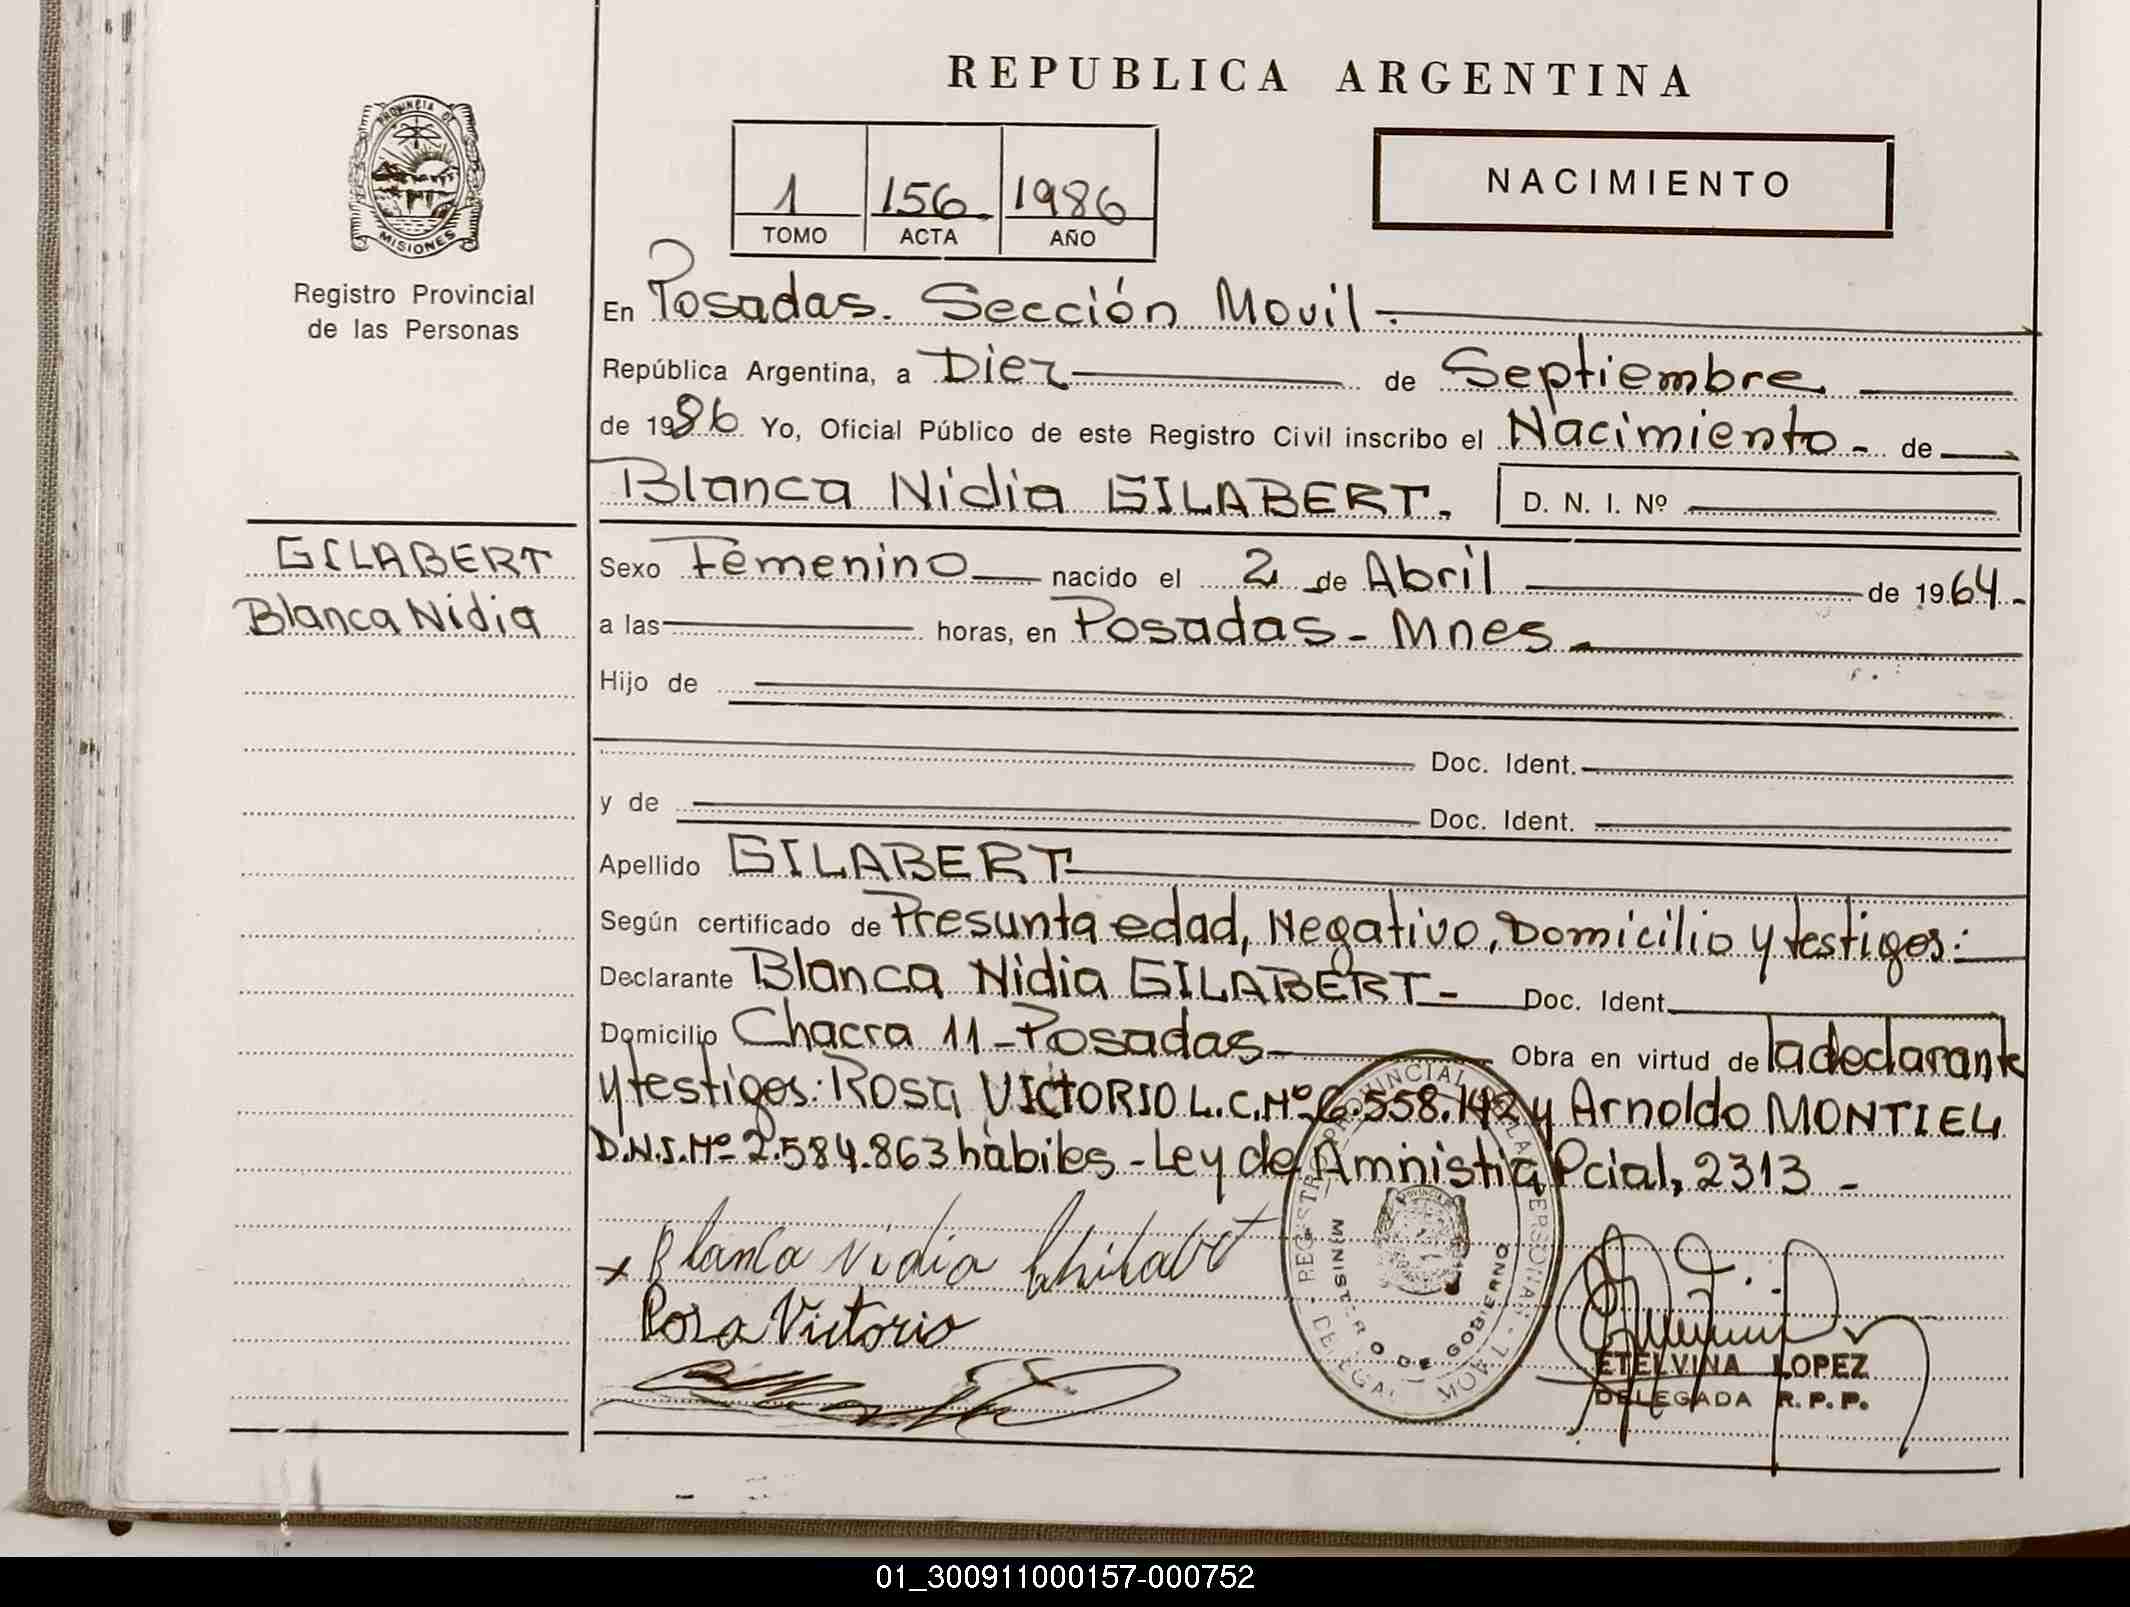 REPUBLICA ARGENTINA
PROVINCIA DE
MISIONES
Registro Provincial
de las Personas
1 156 1986
TOMO ACTA AÑO
NACIMIENTO
En Posadas. Sección Movil.
República Argentina, a Diez de Septiembre.
de 1986 Yo, Oficial Público de este Registro Civil inscribo el Nacimiento - de
Blanca Nidia GILABERT. D. N. I. Nº
GILABERT
Blanca Nidia
Sexo Femenino nacido el 2 de Abril de 1964.-
a las horas, en Posadas - Mnes.
Hijo de
Doc. Ident.
y de Doc. Ident.
Apellido GILABERT
Según certificado de Presunta edad, Negativo, Domicilio y testigos:
Declarante Blanca Nidia GILABERT - Doc. Ident.
Domicilio Chacra 11 - Posadas Obra en virtud de la declarante
y testigos: Rosa VICTORIO L.C.Nº 6.558.142 y Arnoldo MONTIEL
D.N.I.Nº 2.584.863 hábiles - Ley de Amnistia Pcial, 2313 -
x Blanca Nidia Ghilabert
Rosa Victorio
REGISTRO PROVINCIAL DE LAS PERSONAS
MINISTERIO DE GOBIERNO
MOVIL
ETELVINA LOPEZ
DELEGADA R. P. P.
01_300911000157-000752